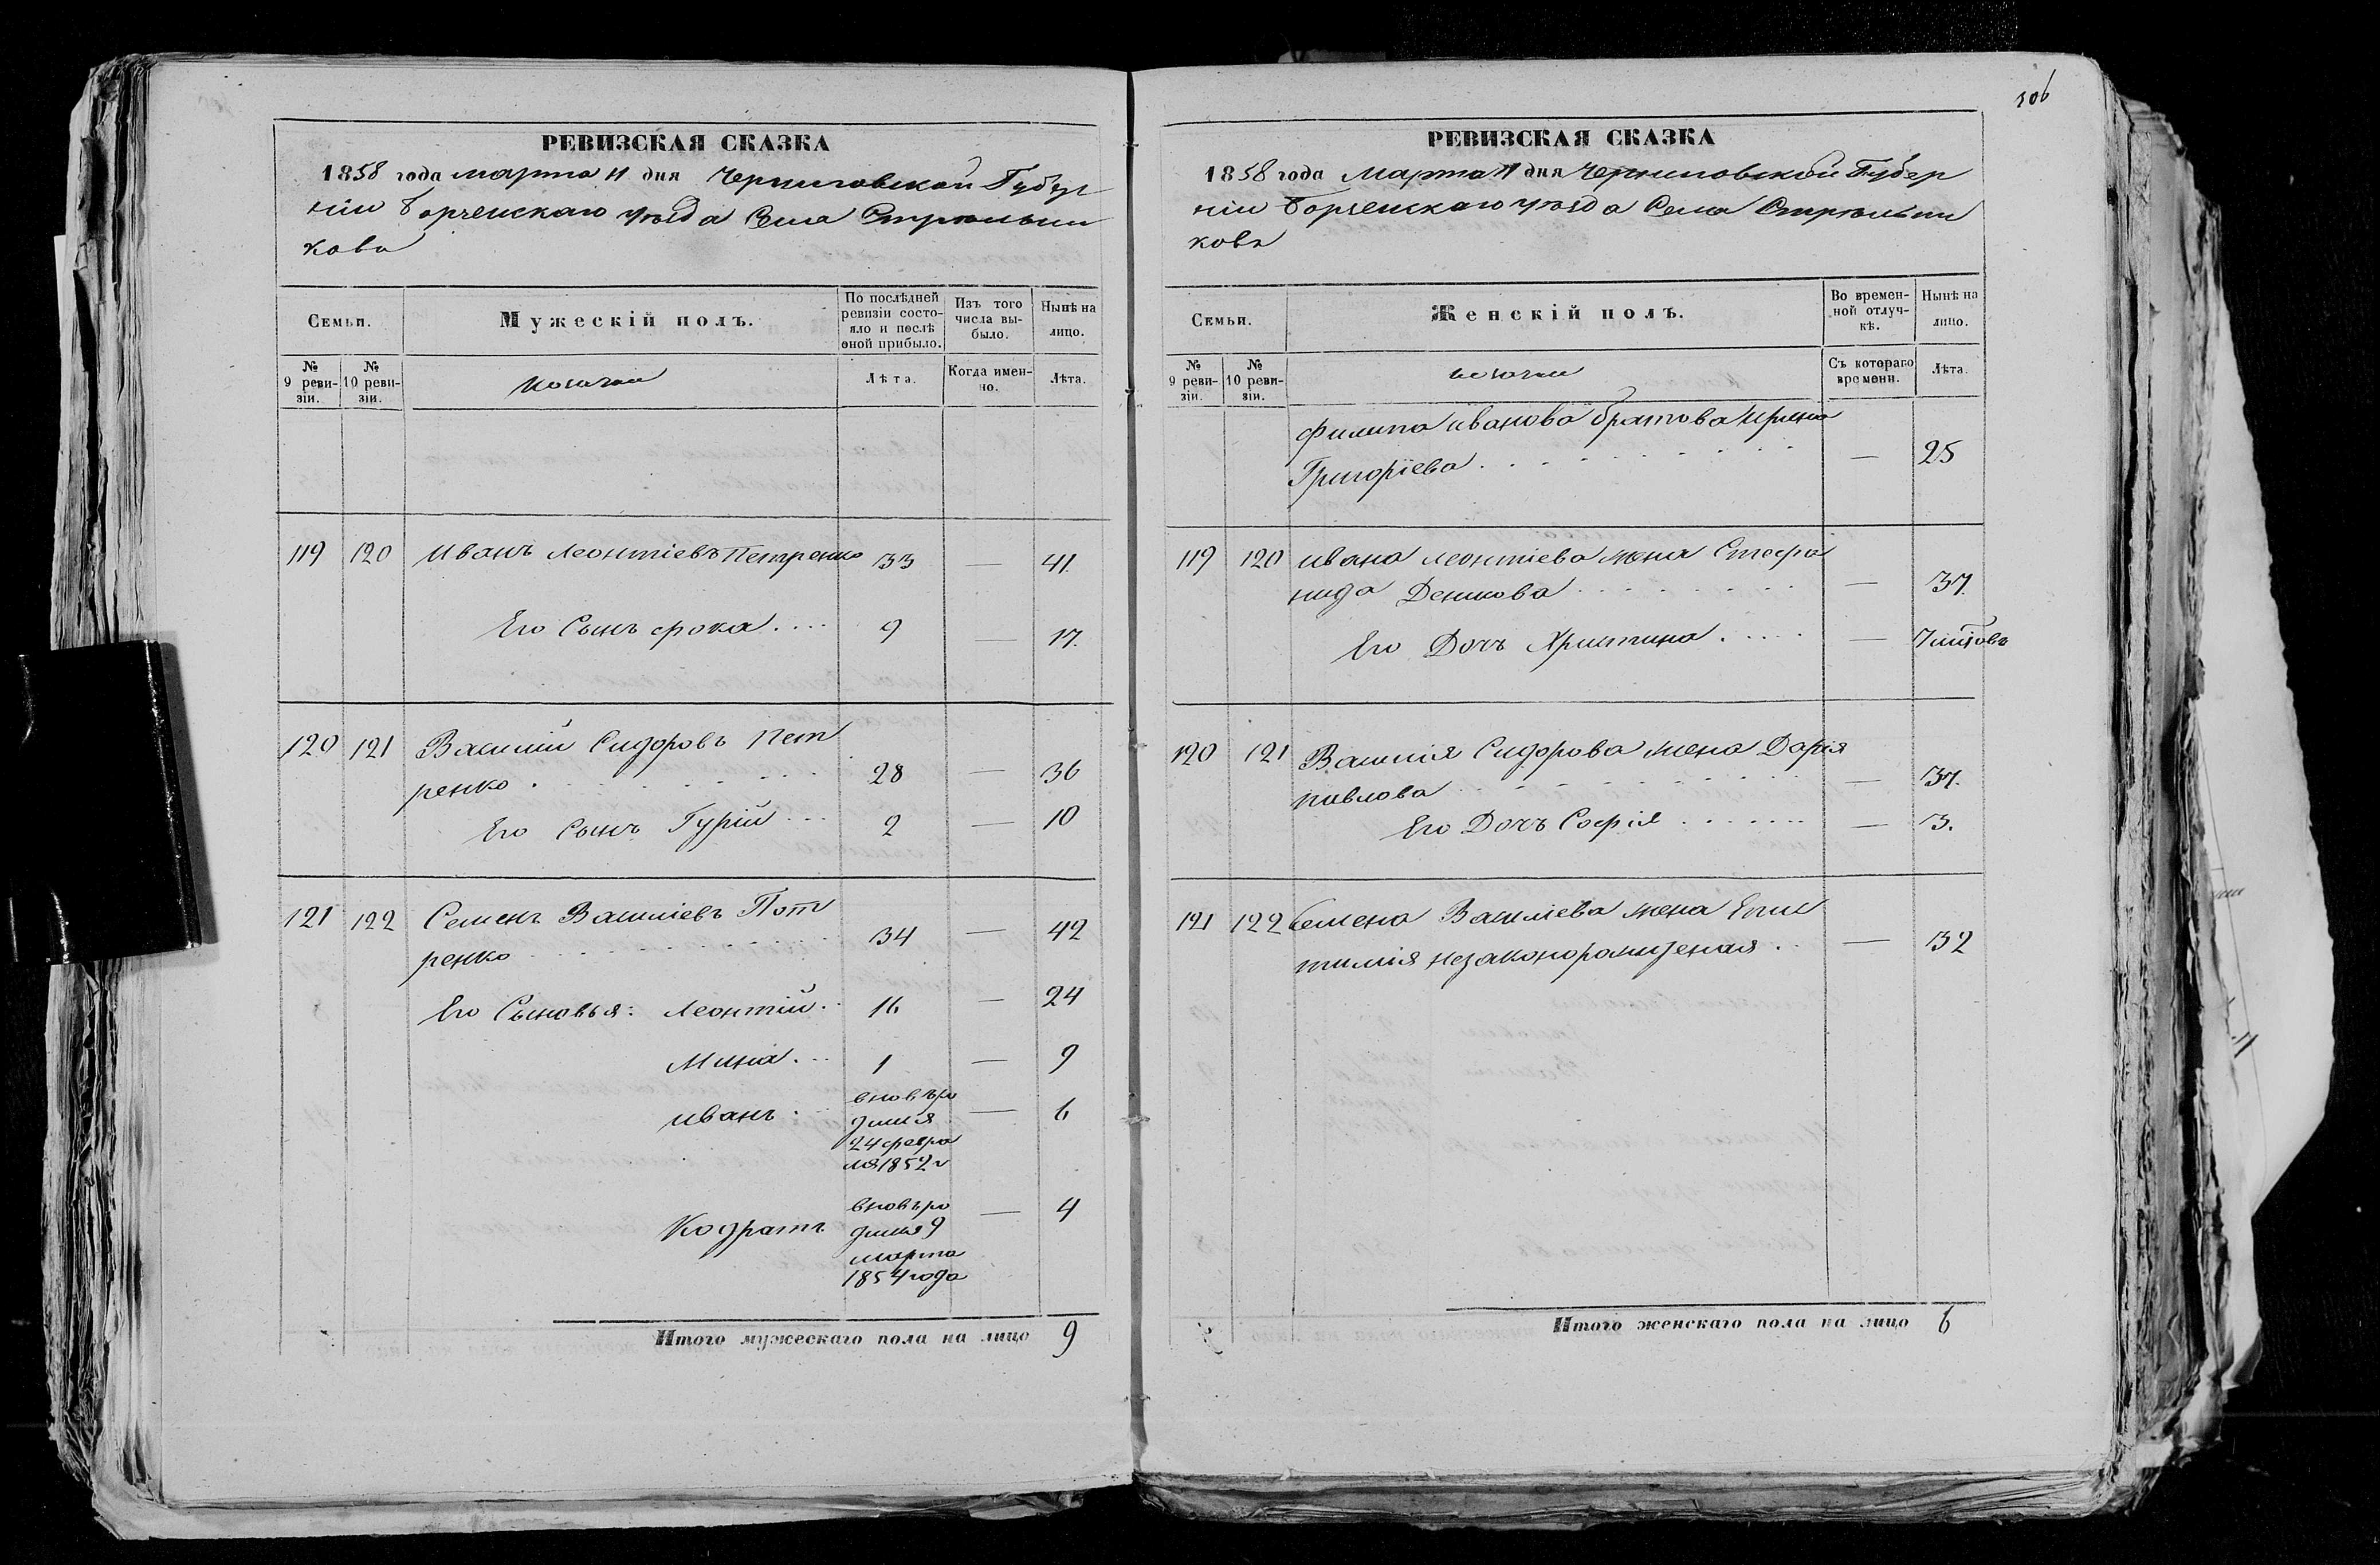 РЕВИЗСКАЯ СКАЗКА
1858 года марта 11 дня Черниговской Губер
ніи Борзенскаго уѣзда Села Стрѣльни
ковъ
Семьи.
Мужескій полъ.
По послѣдней
ревизіи состо-
яло и послѣ
оной прибыло.
Изъ того
числа вы-
было.
Нынѣ на
лицо.
№
9 реви-
зіи.
№
10 реви-
зіи.
Лѣта.
Когда имен-
но.
Лѣта.
119 120 Иванъ Леонтіевъ Петренко 33 — 41
Его Сынъ Фока .... 9 — 17.
120 121 Василій Сидоровъ Пет
ренко . 28 — 36
Его Сынъ Гурій ... 2 — 10
121 122 Семенъ Василіевъ Пет
ренко 34 — 42
Его Сыновья: Леонтій. 16 — 24
Мина... 1 — 9
Иванъ.
вновь ро
дился
24 февра
ля 1852 г
— 6
Кодратъ
вновь ро
дился 9
марта
1854 года
— 4
Итого мужескаго пола на лицо 9
106
РЕВИЗСКАЯ СКАЗКА
1858 года Марта 11 дня Черниговской Губер
ніи Борзенскаго уѣзда Села Стрѣльни
ковъ
Семьи.
Женскій полъ.
Во времен-
ной отлуч-
кѣ.
Нынѣ на
лицо.
№
9 реви-
зіи.
№
10 реви-
зіи.
Съ котораго
времени.
Лѣта.
Филипа Иванова братова Ирина
Григоріева . . . . — 25
119 120 Ивана Леонтіева жена Стефа
нида Денисова . . . . — 37.
Его Дочь Христина. .... — 7 мѣсяцовъ
120 121 Василія Сидорова жена Дарія
Павлова . . . . — 37.
Его Дочь Софія . . . . — 3.
121 122 Семена Василіева жена Епис
тимія незаконорожденая . . — 32
Итого женскаго пола на лицо 6